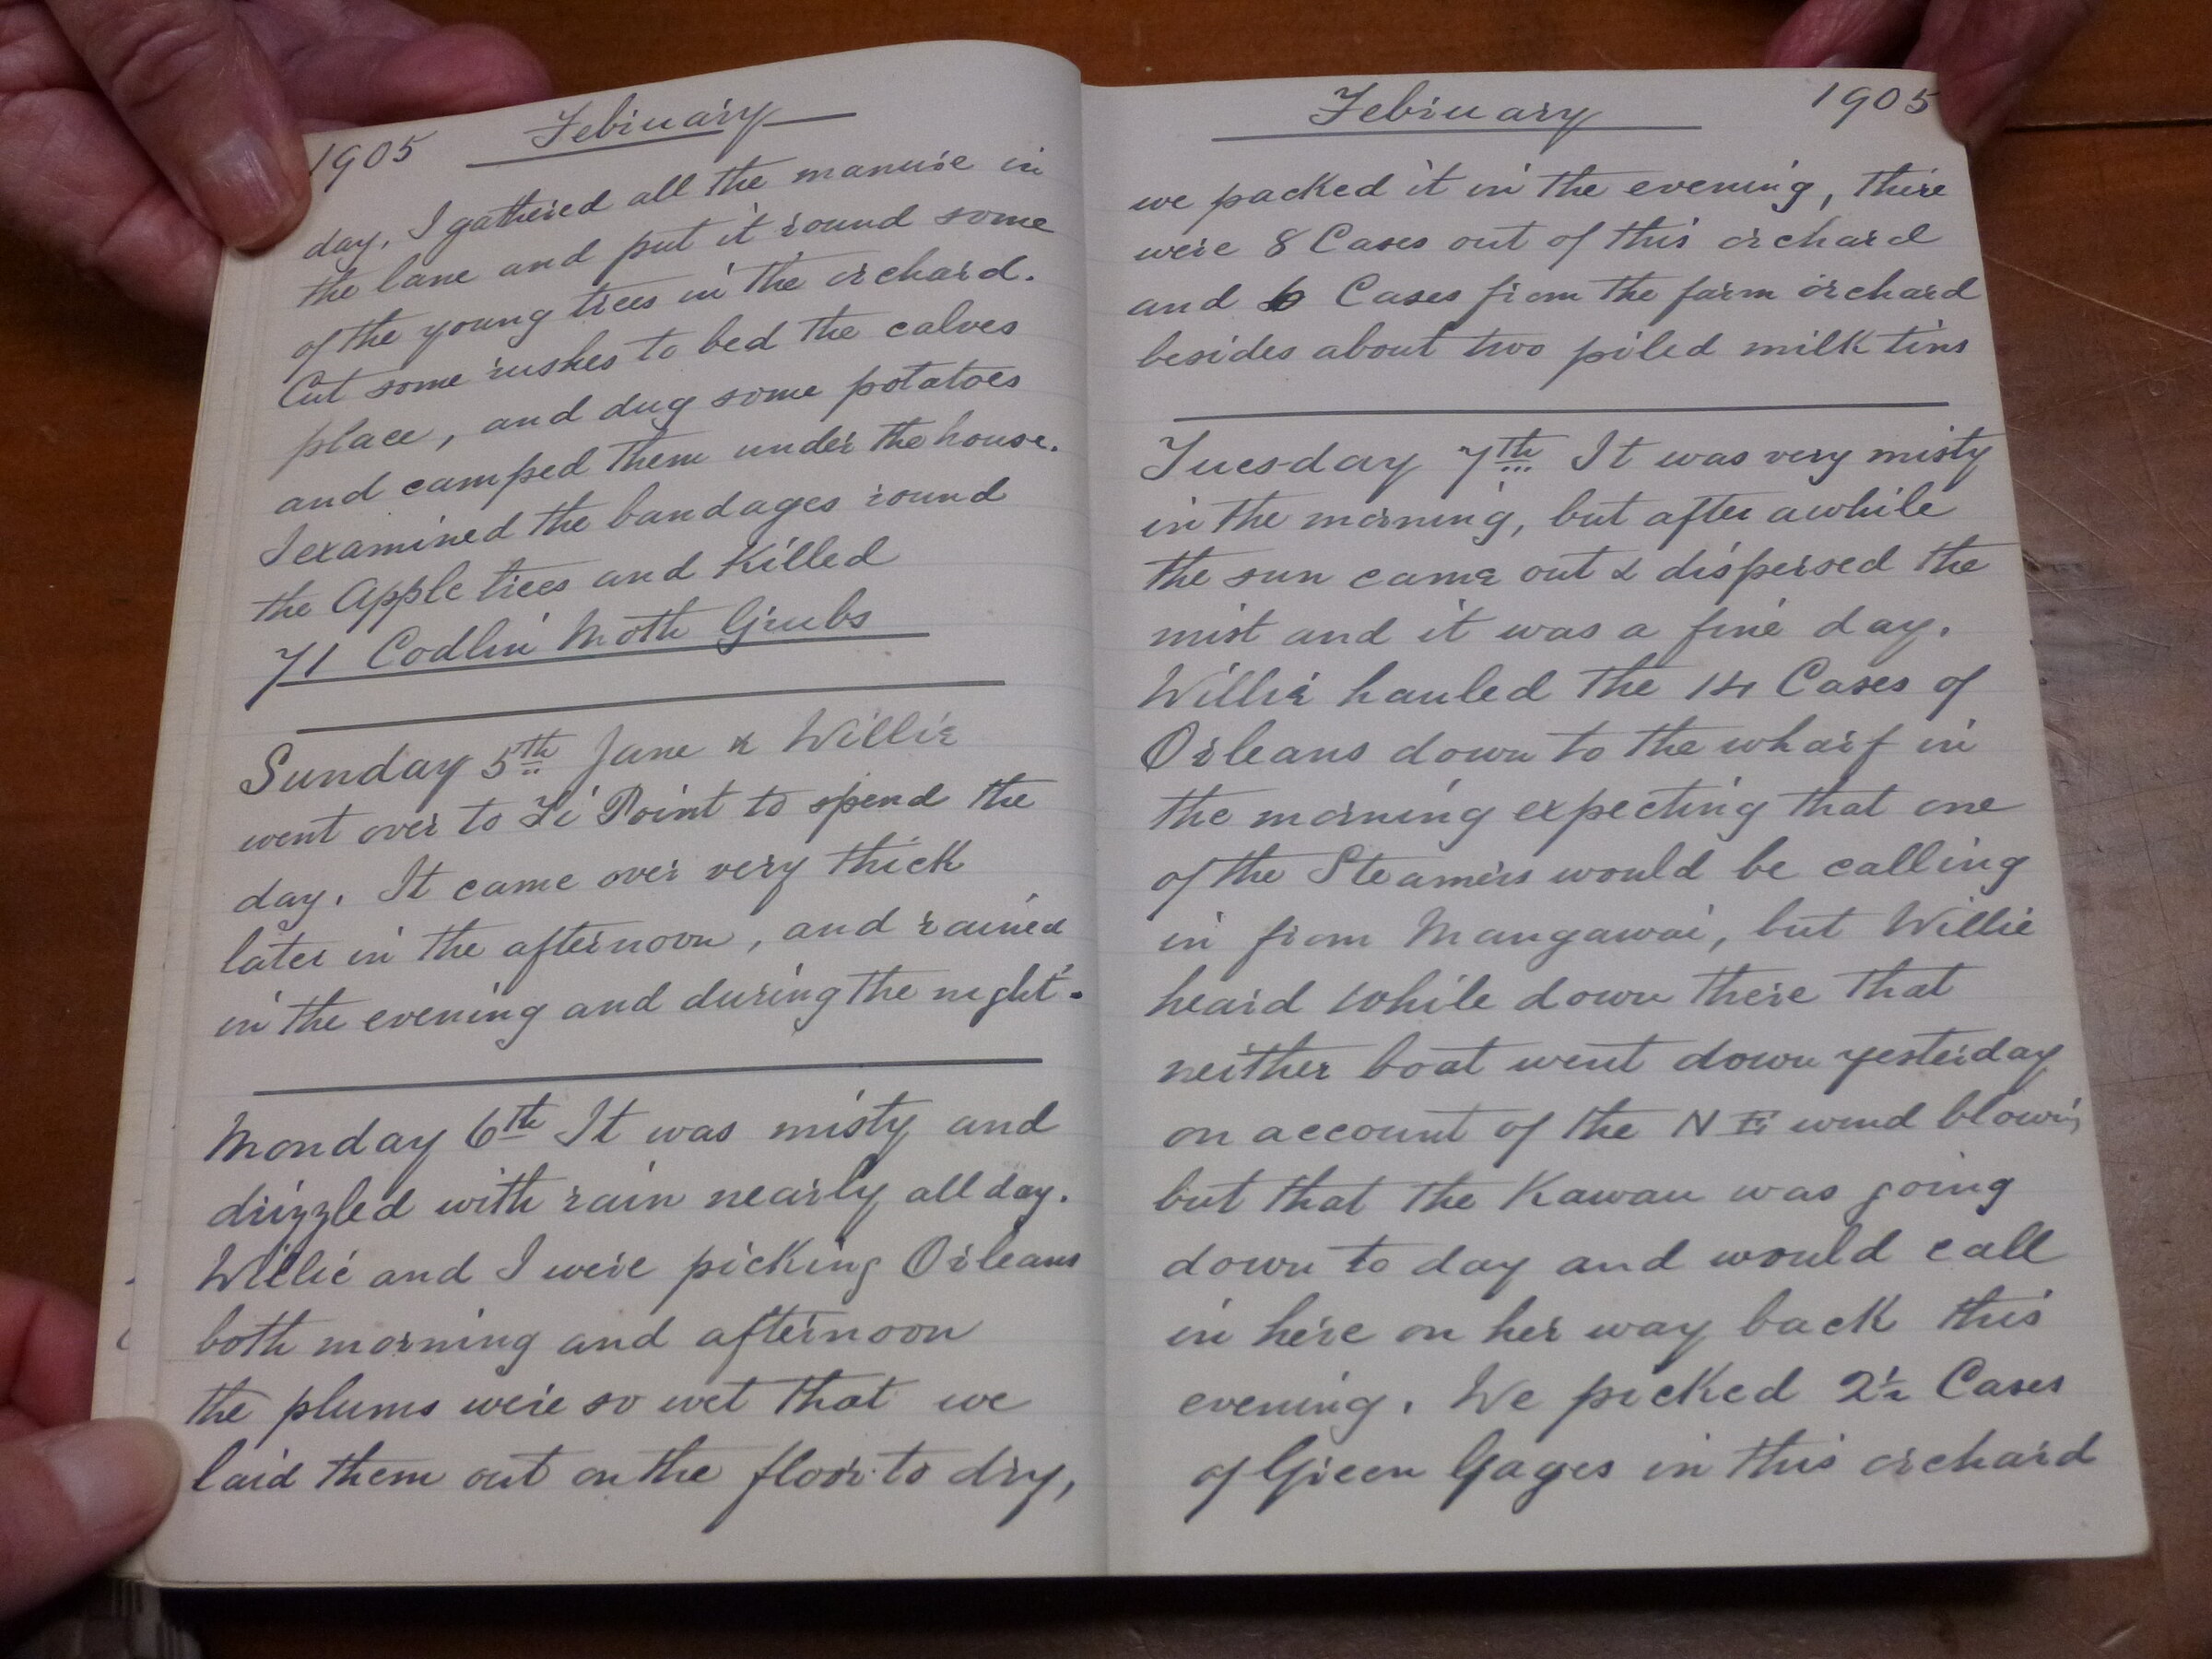 1905 February
day. I gathered all the manure in
the lane and put it round some
of the young trees in the orchard.
Cut some rushes to bed the calves
place, and dug some potatoes
and camped them under the house.
I examined the bandages round
the Apple trees and Killed
71 Codlin Moth Grubs
Sunday 5th Jane & Willie
went over to Ti Point to spend the
day. It came over very thick
later in the afternoon, and rained
in the evening and during the night.
Monday 6th It was misty and
drizzled with rain nearly all day.
Willie and I were picking Orleans
both morning and afternoon
the plums were so wet that we
laid them out on the floor to dry,
February 1905
we packed it in the evening, there
were 8 Cases out of this orchard
and 6 Cases from the farm orchard
besides about two piled milk tins
Tuesday 7th It was very misty
in the morning, but after awhile
the sun came out & dispersed the
mist and it was a fine day.
Willie hauled the 14 Cases of
Orleans down to the wharf in
the morning expecting that one
of the Steamers would be calling
in from Mangawai, but Willie
heard while down there that
neither boat went down yesterday
on account of the N E wind blowing
but that the Kawau was going
down to day and would call
in here on her way back this
evening. We picked 2½ Cases
of Green Gages in this orchard